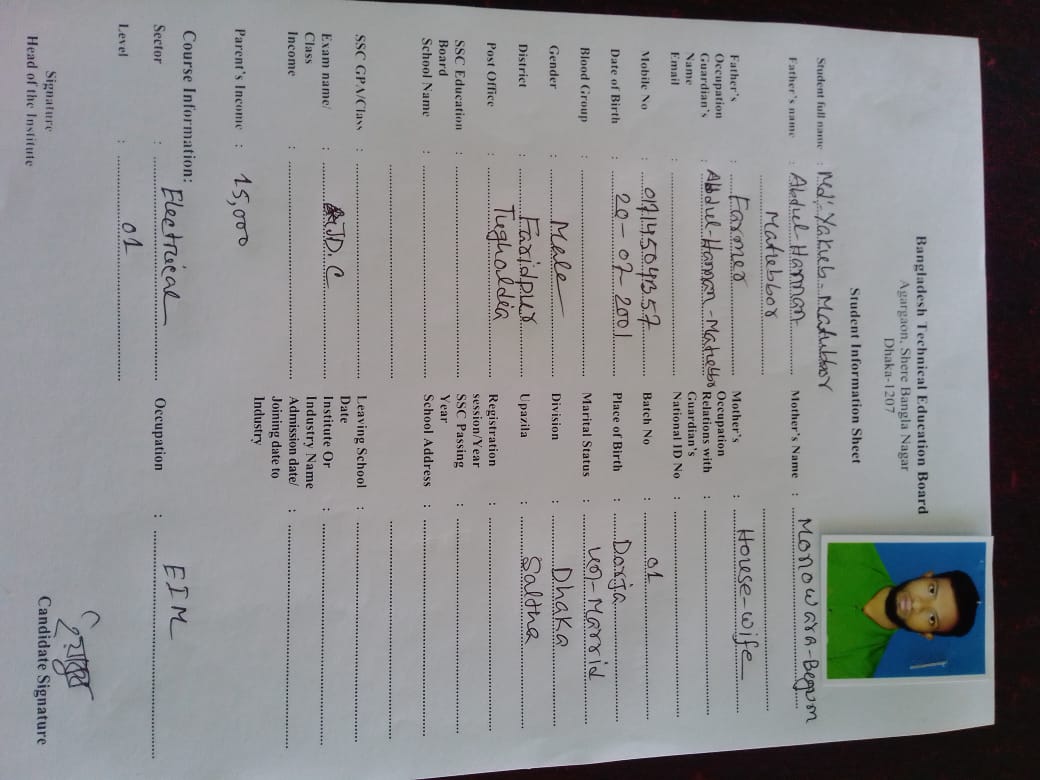 Bangladesh Technical Education Board
Agargaon, Shere Bangla Nagar
Dhaka-1207
Student Information Sheet
Student full name : Md: Yakub-Matubbor
Father's name : Abdul Hannan Matubbor Mother's Name : Monowara-Begum
Father's Occupation : Farmer Mother's Occupation : House-wife
Guardian's Name : Abdul-Hannan-Matubbo Relations with Guardian's :
Email : National ID No :
Mobile No : 01714504357 Batch No : 01
Date of Birth : 20-07-2001 Place of Birth : Darja
Blood Group : Marital Status : un-Marrid
Gender : Male Division : Dhaka
District : Faridpur Upazila : Saltha
Post Office : Tughaldia Registration session/Year :
SSC Education Board : SSC Passing Year :
School Name : School Address :
SSC GPA/Class : Leaving School Date :
Exam name/ Class : J.D.C Institute Or Industry Name :
Income : Admission date/ Joining date to Industry :
Parent's Income : 15,000
Course Information:
Sector : Electrical Occupation : EIM
Level : 01
Signature
Head of the Institute
Candidate Signature